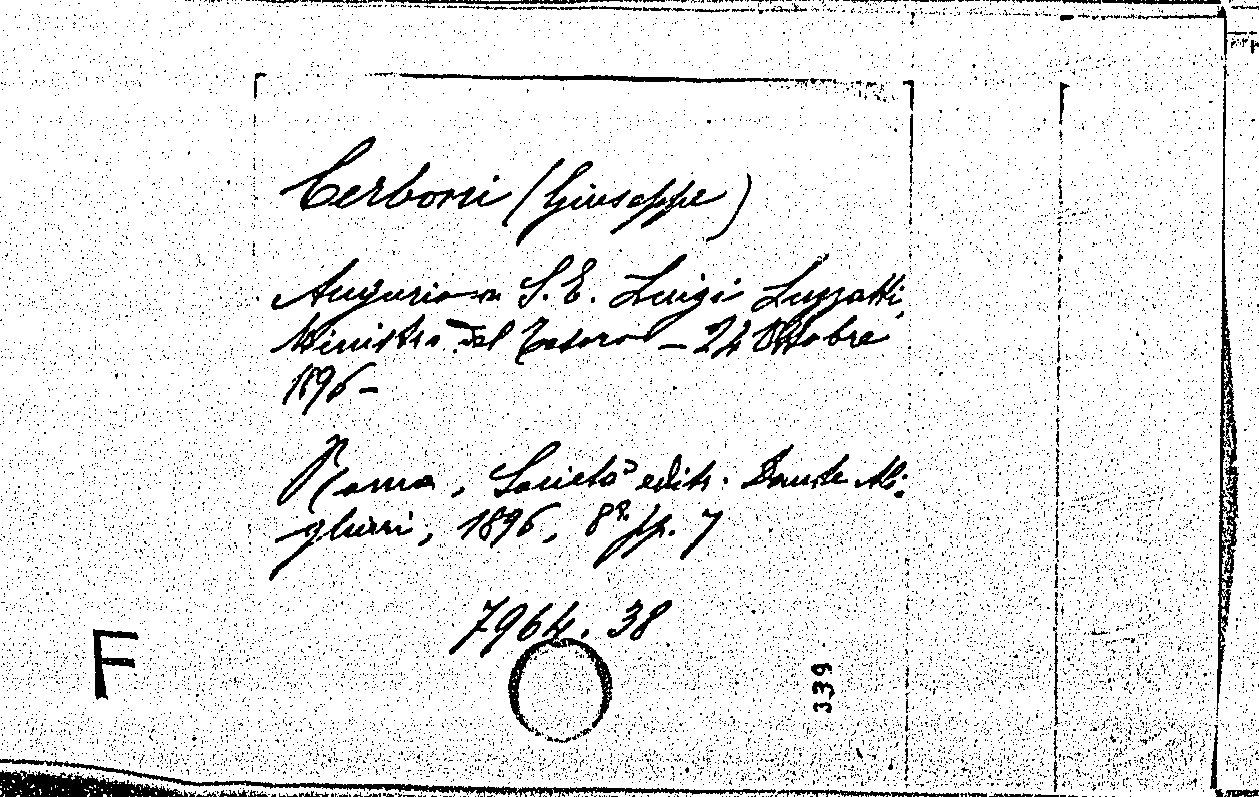 Cerboni (Giuseppe)
Augurio a S. E. Luigi Luzzatti,
Ministro del Tesoro – 24 Ottobre
1896 –
Roma, Società edit. Dante Ali-
ghieri, 1896, 8º pp. 7
7964. 38
F
339